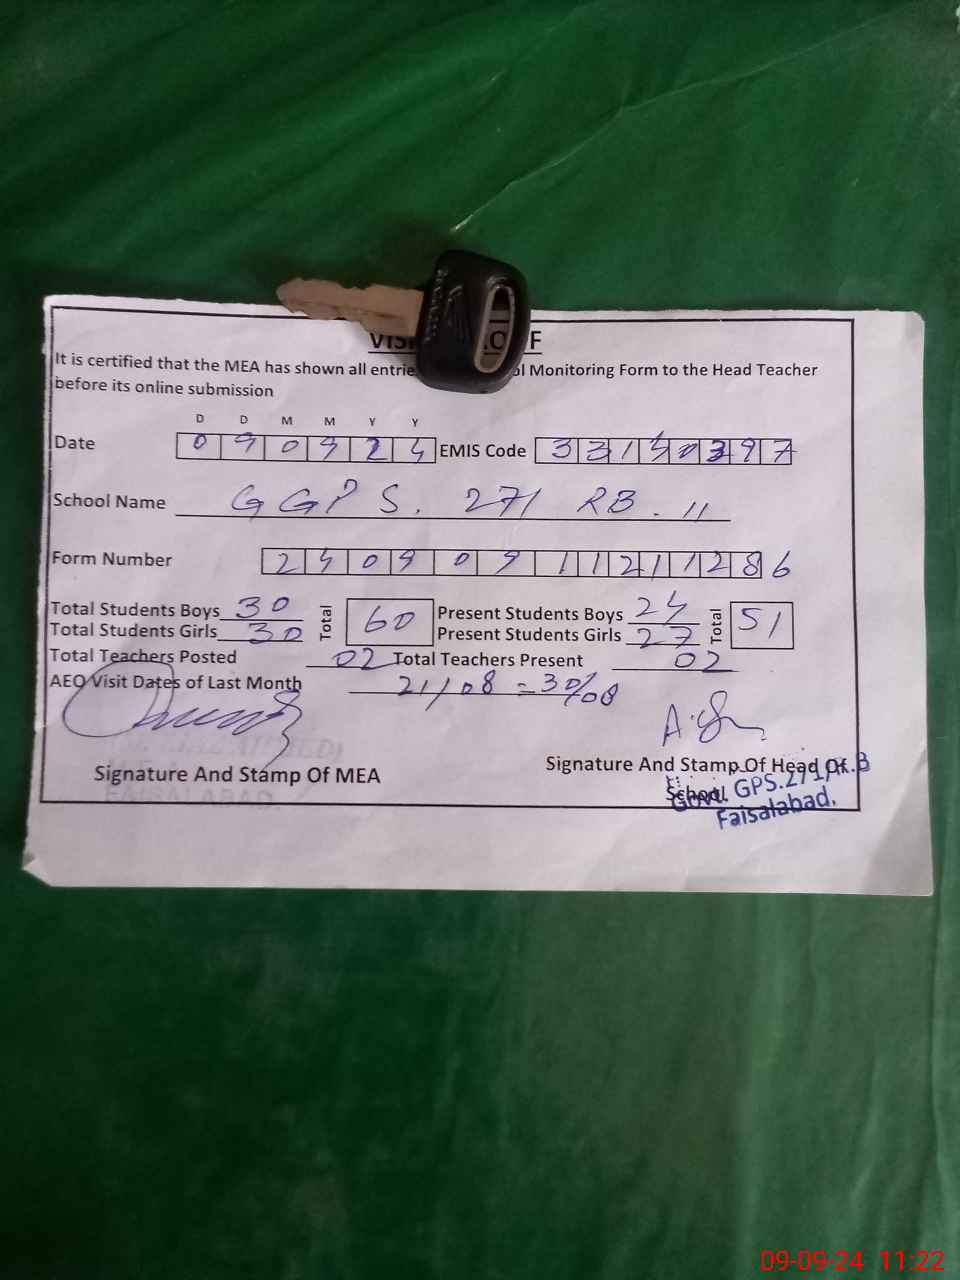 VIS
OF
It is certified that the MEA has shown all entrie ol Monitoring Form to the Head Teacher
before its online submission
D D M M Y Y
Date 0 9 0 9 2 4 EMIS Code 3 3 1 4 0 3 9 7
School Name G G P S. 271 RB. II
Form Number 2 4 0 9 0 9 1 1 2 1 1 2 8 6
Total Students Boys 30 Total 60 Present Students Boys 24 Total 51
Total Students Girls 30 Present Students Girls 27
Total Teachers Posted 02 Total Teachers Present 02
AEO Visit Dates of Last Month 21/08 = 30/08
Signature And Stamp Of MEA Signature And Stamp Of Head Of
School
Govt. GPS.271/R.B
Faisalabad.
FAISALABAD.
09-09-24 11:22